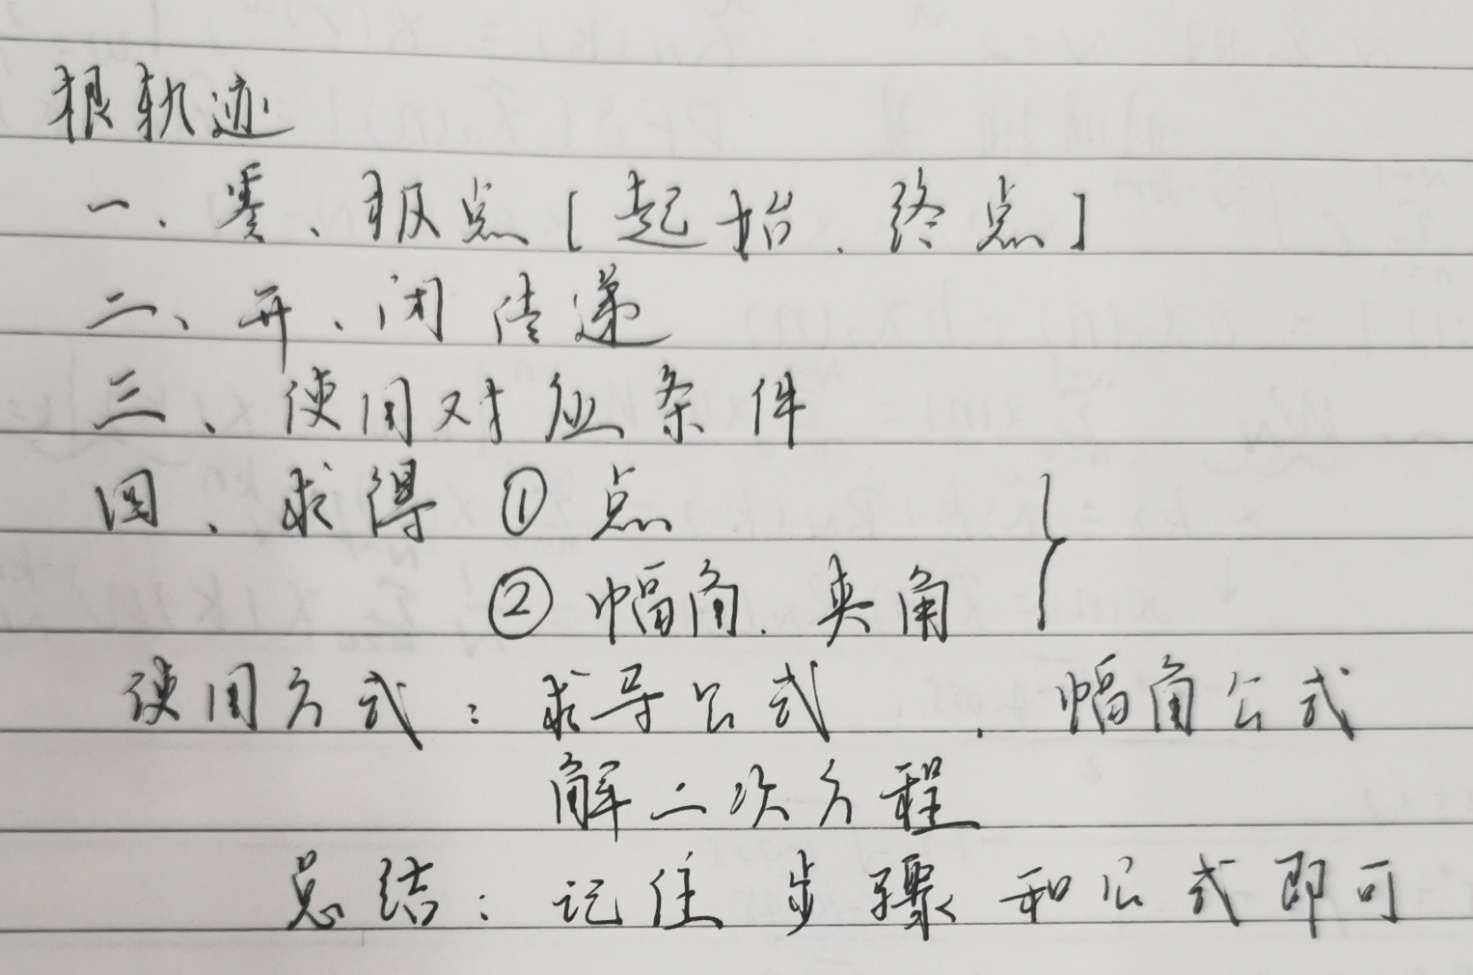 根轨迹
一、零、极点[起始、终点]
二、开、闭传递
三、使用对应条件
四、求得 ①点
②幅角、夹角 }
使用方式：求导公式、幅角公式
解二次方程
总结：记住步骤和公式即可